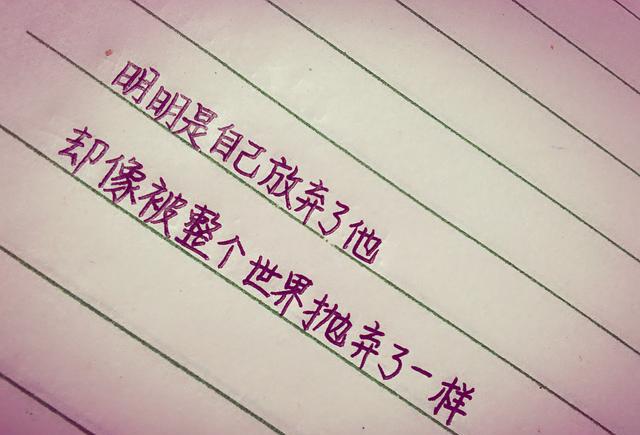 明明是自己放弃了他
却像被整个世界抛弃了一样